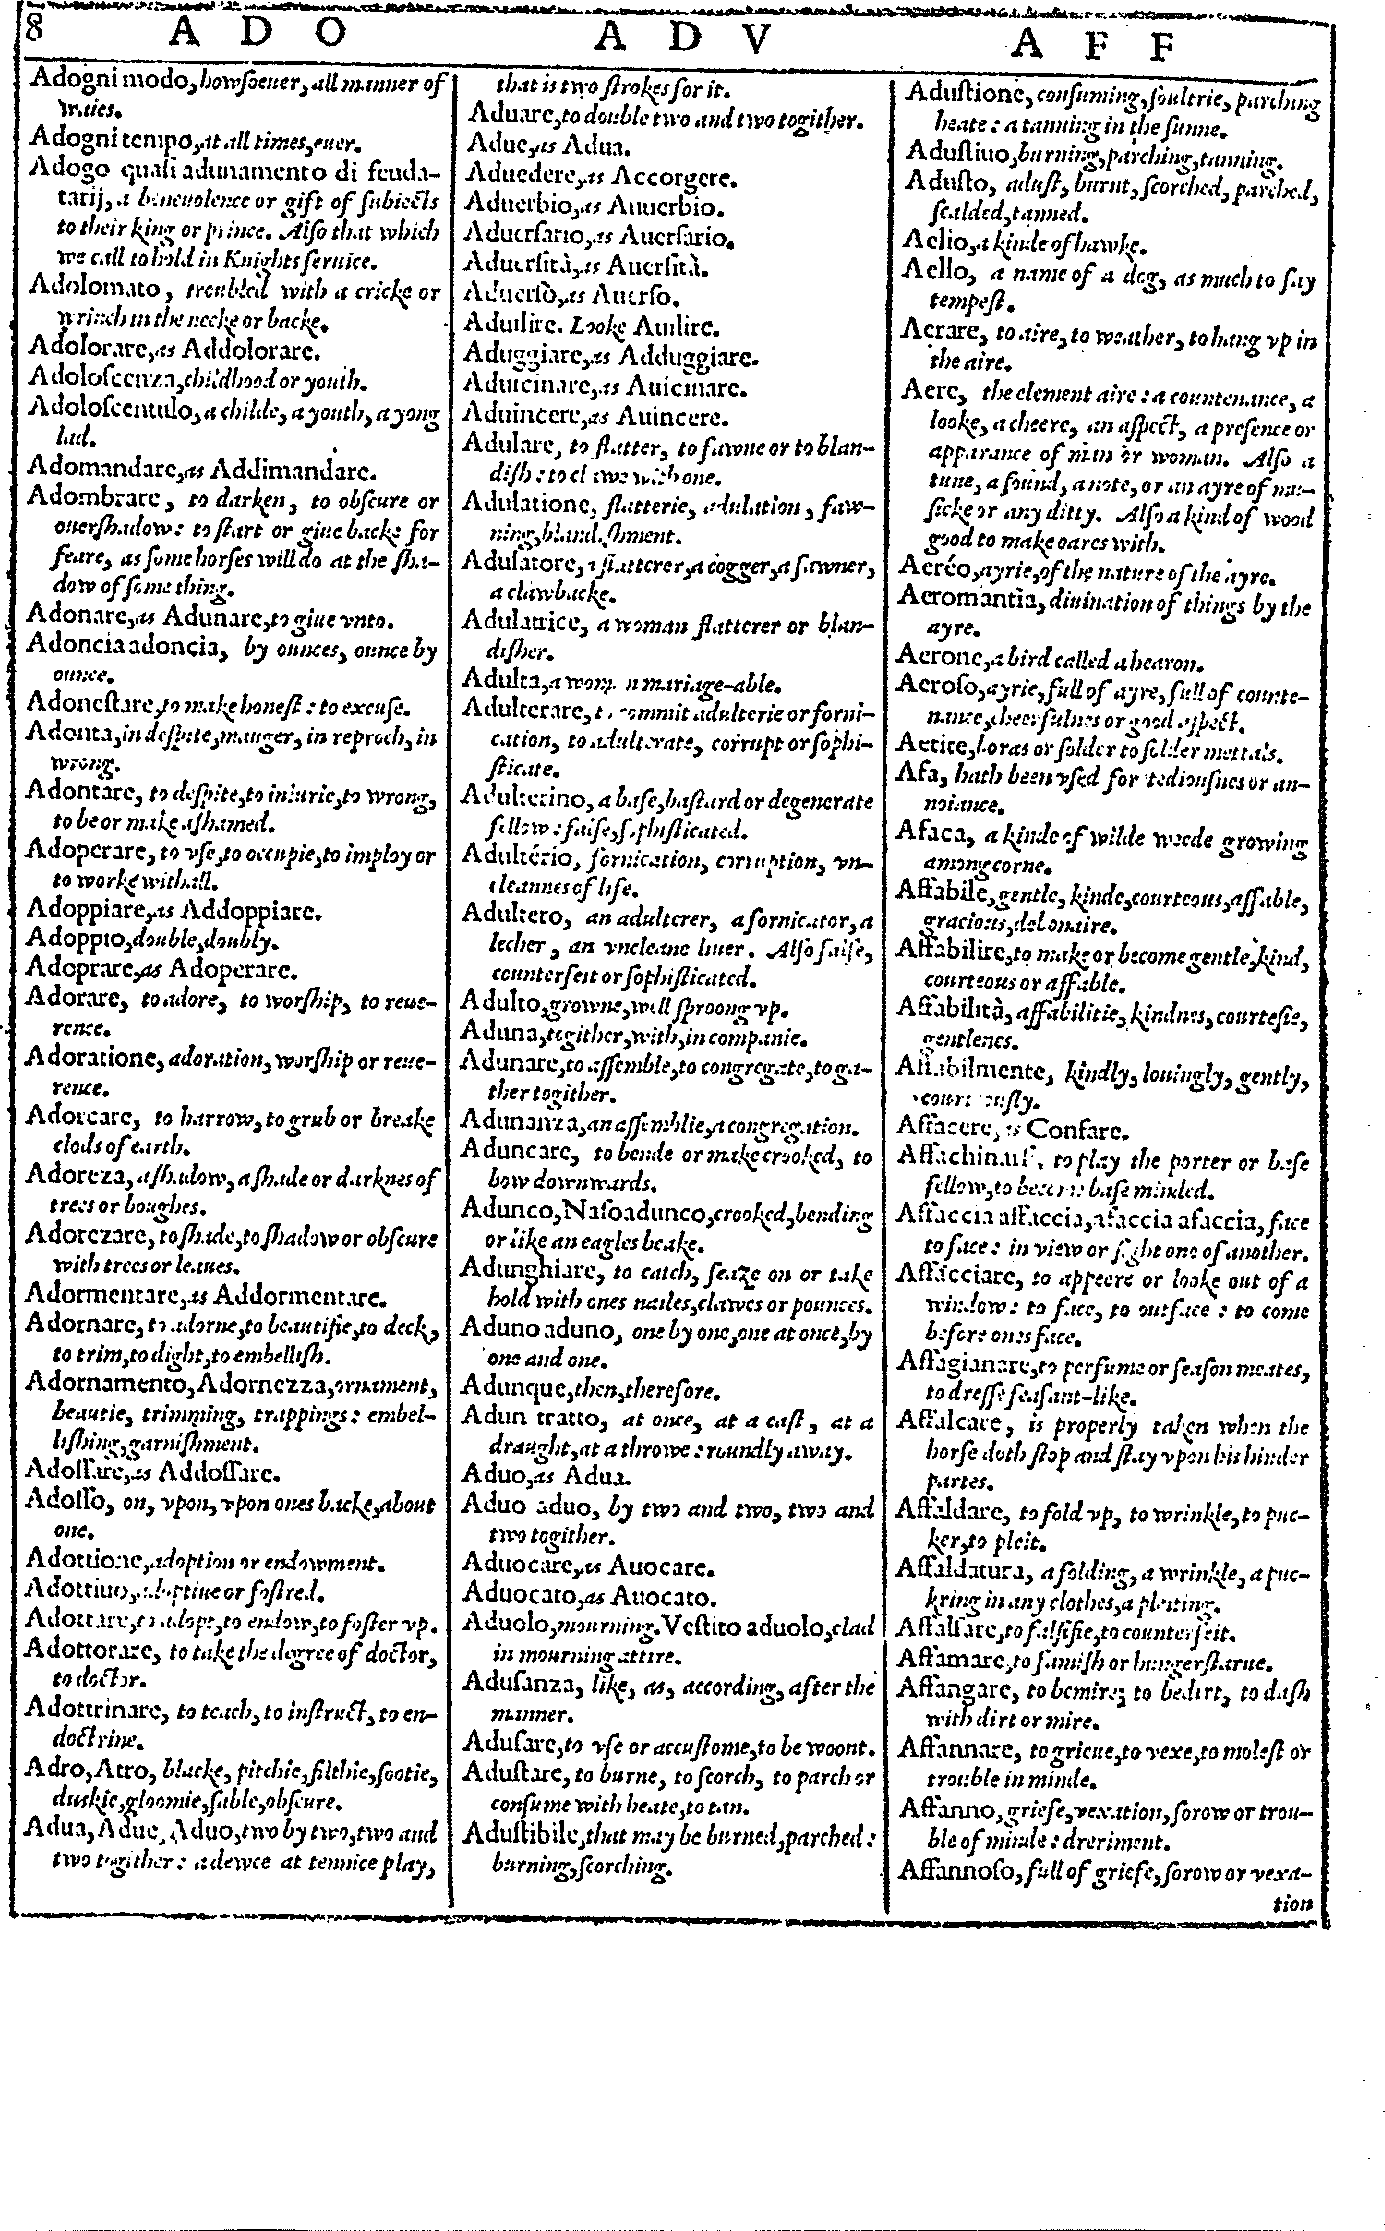 8 A D O A D V A F F
Adogni modo, howſoeuer, all manner of
waies.
Adogni tempo, at all times, euer.
Adogo quaſi adunamento di feuda-
tarij, a beneuolence or gift of ſubiects
to their king or prince. Alſo that which
we call to hold in Knights ſeruice.
Adolomato, troubled with a cricke or
wrinch in the necke or backe.
Adolorare, as Addolorare.
Adoloſcenza, childhood or youth.
Adoloſcentulo, a childe, a youth, a yong
lad.
Adomandare, as Addimandare.
Adombrare, to darken, to obſcure or
ouerſhadow: to ſtart or giue backe for
feare, as ſome horſes will do at the ſha-
dow of ſome thing.
Adonare, as Adunare, to giue vnto.
Adoncia adoncia, by ounces, ounce by
ounce.
Adoneſtare, to make honeſt: to excuſe.
Adonta, in deſpite, mauger, in reproch, in
wrong.
Adontare, to deſpite, to iniurie, to wrong,
to be or make aſhamed.
Adoperare, to vſe, to occupie, to imploy or
to worke withall.
Adoppiare, as Addoppiare.
Adoppio, double, doubly.
Adoprare, as Adoperare.
Adorare, to adore, to worſhip, to reue-
rence.
Adoratione, adoration, worſhip or reue-
rence.
Adorcare, to harrow, to grub or breake
clods of earth.
Adoreza, a ſhadow, a ſhade or darknes of
trees or boughes.
Adorezare, to ſhade, to ſhadow or obſcure
with trees or leaues.
Adormentare, as Addormentare.
Adornare, to adorne, to beautifie, to deck,
to trim, to dight, to embelliſh.
Adornamento, Adornezza, ornament,
beautie, trimming, trappings: embel-
liſhing, garniſhment.
Adoſſare, as Addoſſare.
Adoſſo, on, vpon, vpon ones backe, about
one.
Adottione, adoption or endowment.
Adottiuo, adoptiue or foſtred.
Adottare, to adopt, to endow, to foſter vp.
Adottorare, to take the degree of doctor,
to doctor.
Adottrinare, to teach, to inſtruct, to en-
doctrine.
Adro, Atro, blacke, pitchie, filthie, ſootie,
duskie, gloomie, ſable, obſcure.
Adua, Adue, Aduo, two by two, two and
two togither: a dewce at tennice play,
that is two ſtrokes for it.
Aduare, to double two and two togither.
Adue, as Adua.
Aduedere, as Accorgere.
Aduerbio, as Auuerbio.
Aduerſario, as Auerſario.
Aduerſità, as Auerſità.
Aduerſo, as Auerſo.
Aduilire. Looke Auilire.
Aduggiare, as Adduggiare.
Aduicinare, as Auicinare.
Aduincere, as Auincere.
Adulare, to flatter, to fawne or to blan-
diſh: to clawe with one.
Adulatione, flatterie, adulation, faw-
ning, blandiſhment.
Adulatore, a flatterer, a cogger, a fawner,
a clawbacke.
Adulatrice, a woman flatterer or blan-
diſher.
Adulta, a woman mariage-able.
Adulterare, to commit adulterie or forni-
cation, to adulterate, corrupt or ſophi-
ſticate.
Adulterino, a baſe, baſtard or degenerate
fellow: falſe, ſophiſticated.
Adultério, fornication, corruption, vn-
cleannes of life.
Adultero, an adulterer, a fornicator, a
lecher, an vncleane liuer. Alſo falſe,
counterfeit or ſophiſticated.
Adulto, growne, well ſproong vp.
Aduna, togither, with, in companie.
Adunare, to aſſemble, to congregate, to ga-
ther togither.
Adunanza, an aſſemblie, a congregation.
Aduncare, to bende or make crooked, to
bow downwards.
Adunco, Naſo adunco, crooked, bending
or like an eagles beake.
Adunghiare, to catch, ſeaze on or take
hold with ones nailes, clawes or pounces.
Aduno aduno, one by one, one at once, by
one and one.
Adunque, then, therefore.
Adun tratto, at once, at a caſt, at a
draught, at a throwe: roundly away.
Aduo, as Adua.
Aduo aduo, by two and two, two and
two togither.
Aduocare, as Auocare.
Aduocato, as Auocato.
Aduolo, mourning. Veſtito aduolo, clad
in mourning attire.
Aduſanza, like, as, according, after the
manner.
Aduſare, to vſe or accuſtome, to be woont.
Aduſtare, to burne, to ſcorch, to parch or
conſume with heate, to tan.
Aduſtibile, that may be burned, parched:
burning, ſcorching.
Aduſtione, conſuming, ſoultrie, parching
heate: a tanning in the ſunne.
Aduſtiuo, burning, parching, tanning.
Aduſto, aduſt, burnt, ſcorched, parched,
ſcalded, tanned.
Aelio, a kinde of hawke.
Aello, a name of a dog, as much to ſay
tempeſt.
Aerare, to aire, to weather, to hang vp in
the aire.
Aere, the element aire: a countenance, a
looke, a cheere, an aſpect, a preſence or
apparance of man or woman. Alſo a
tune, a ſound, a note, or an ayre of mu-
ſicke or any ditty. Alſo a kind of wood
good to make oares with.
Aeréo, ayrie, of the nature of the ayre.
Aeromantìa, diuination of things by the
ayre.
Aerone, a bird called a hearon.
Aeroſo, ayrie, full of ayre, full of counte-
nance, cheerfulnes or good aſpect.
Aetite, boras or ſolder to ſolder mettals.
Afa, hath been vſed for tediouſnes or an-
noiance.
Afaca, a kinde of wilde weede growing
among corne.
Affabile, gentle, kinde, courteous, affable,
gracious, debonaire.
Affabilire, to make or become gentle, kind,
courteous or affable.
Affabilità, affabilitie, kindnes, courteſie,
gentlenes.
Affabilmente, kindly, louingly, gently,
courteouſly.
Affacere, as Confare.
Affachinarſi, to play the porter or baſe
fellow, to become baſe minded.
Affaccia affaccia, afaccia afaccia, face
to face: in view or ſight one of another.
Affacciare, to appeere or looke out of a
window: to face, to outface: to come
before ones face.
Affagianare, to perfume or ſeaſon meates,
to dreſſe feaſant-like.
Affalcare, is properly taken when the
horſe doth ſtop and ſtay vpon his hinder
partes.
Affaldare, to fold vp, to wrinkle, to puc-
ker, to pleit.
Affaldatura, a folding, a wrinkle, a puc-
kring in any clothes, a pleiting.
Affalſare, to falſifie, to counterfeit.
Affamare, to famiſh or hunger ſtarue.
Affangare, to bemire, to bedirt, to daſh
with dirt or mire.
Affannare, to grieue, to vexe, to moleſt or
trouble in minde.
Affanno, griefe, vexation, ſorow or trou-
ble of minde: dreriment.
Affannoſo, full of griefe, ſorow or vexa-
tion